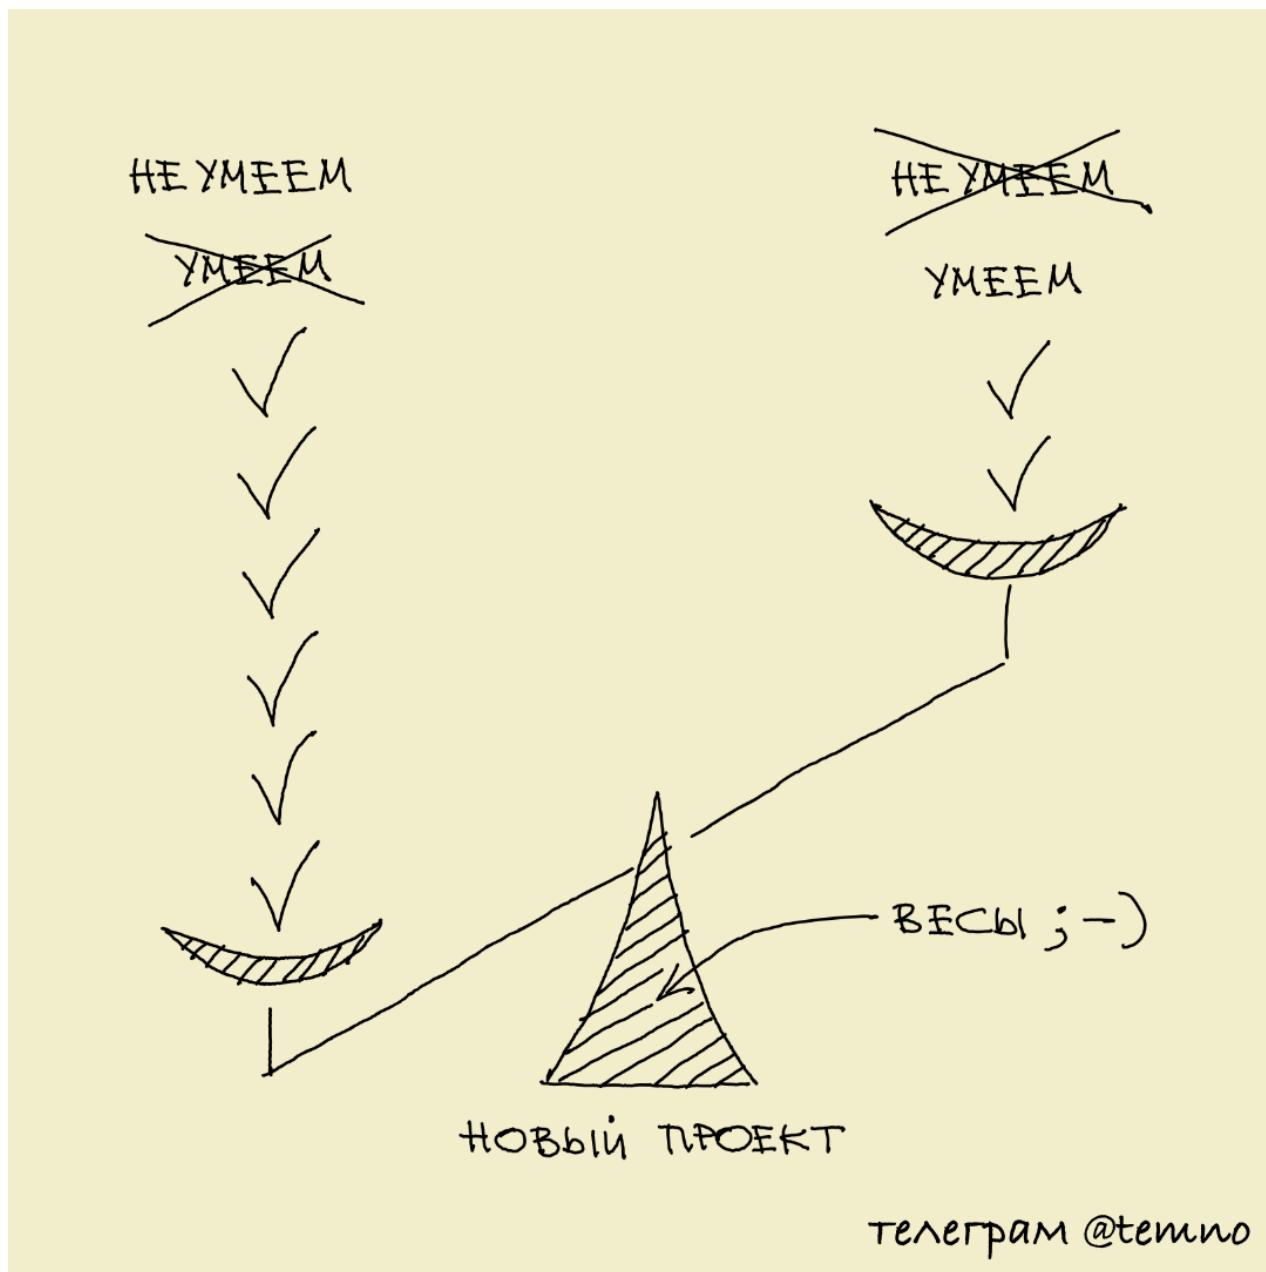 НЕ УМЕЕМ
УМЕЕМ
НЕ УМЕЕМ
УМЕЕМ
ВЕСЫ ;-)
НОВЫЙ ПРОЕКТ
телеграм @temno